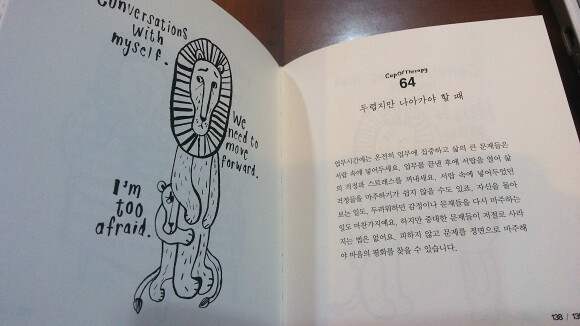 Conversations
with
myself.
We
need to
move
forward.
I'm
too
afraid.
Cup Of Therapy
64
두렵지만 나아가야 할 때
업무시간에는 온전히 업무에 집중하고 삶의 큰 문제들은
서랍 속에 넣어두세요. 업무를 끝낸 후에 서랍을 열어 삶
의 걱정과 스트레스를 꺼내세요. 서랍 속에 넣어두었던
걱정들을 마주하기가 쉽지 않을 수도 있죠. 자신을 돌아
보는 일도, 두려워하던 감정이나 문제들을 다시 마주하는
일도 마찬가지예요. 하지만 중대한 문제들이 저절로 사라
지는 법은 없어요. 피하지 않고 문제를 정면으로 마주해
야 마음의 평화를 찾을 수 있습니다.
138 / 139